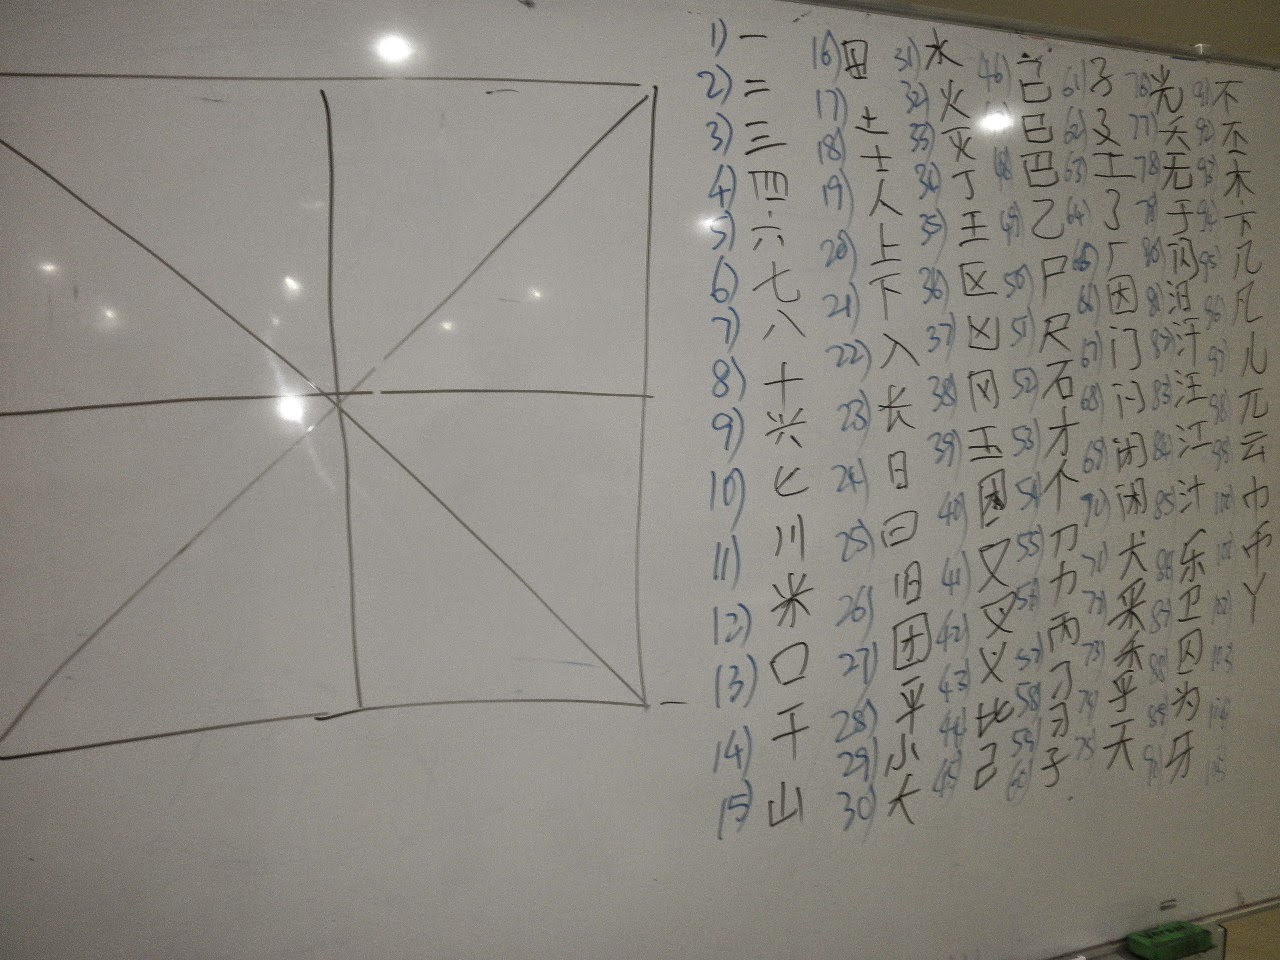 1) 一
2) 二
3) 三
4) 四
5) 六
6) 七
7) 八
8) 十
9) 兴
10) 匕
11) 川
12) 米
13) 口
14) 干
15) 山
16) 田
17) 土
18) 士
19) 人
20) 上
21) 下
22) 入
23) 长
24) 日
25) 曰
26) 旧
27) 团
28) 平
29) 小
30) 大
31) 水
32) 火
33) 灭
34) 丁
35) 王
36) 区
37) 凶
38) 冈
39) 玉
40)
41) 又
42) 叉
43) 义
44) 比
45) 己
46)
巳
48) 巴
49) 乙
50) 尸
51) 尺
52) 石
53) 才
54) 个
55) 刀
56) 力
57) 丙
58) 刁
59) 习
60) 子
61) 孑
62)
63) 工
64) 了
65) 厂
66) 因
67) 门
68) 闩
69) 闭
70) 闲
71) 犬
72) 采
73)
74) 乎
75) 天
76) 光
77) 夭
78) 无
79) 于
80) 闪
81) 汨
82) 汗
83) 汪
84) 江
85) 汁
86) 乐
87) 卫
88) 囚
89) 为
牙
91) 不
92) 丕
93) 木
94) 卞
95) 几
96) 凡
97) 儿
98) 兀
99) 云
100) 巾
币
丫
103)
104)
105)